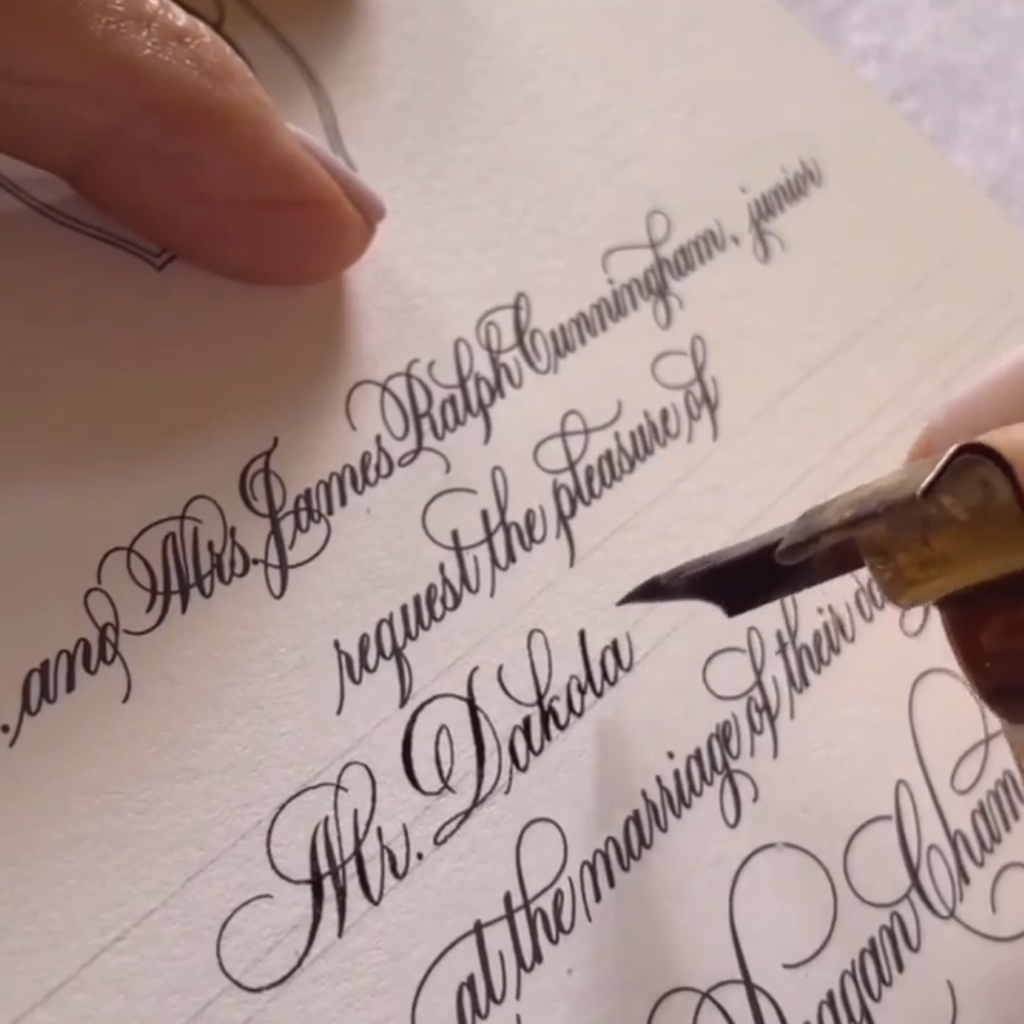 . and Mrs. James Ralph Cunningham, junior
request the pleasure of
Mr. Dakota
at the marriage of their